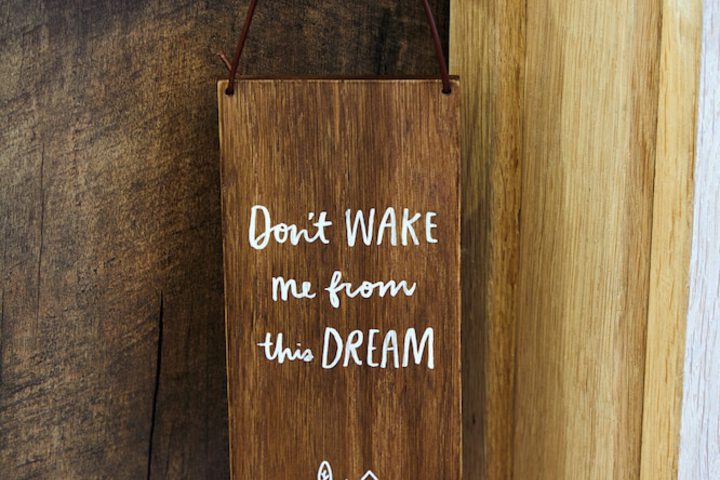 Don't WAKE
me from
this DREAM